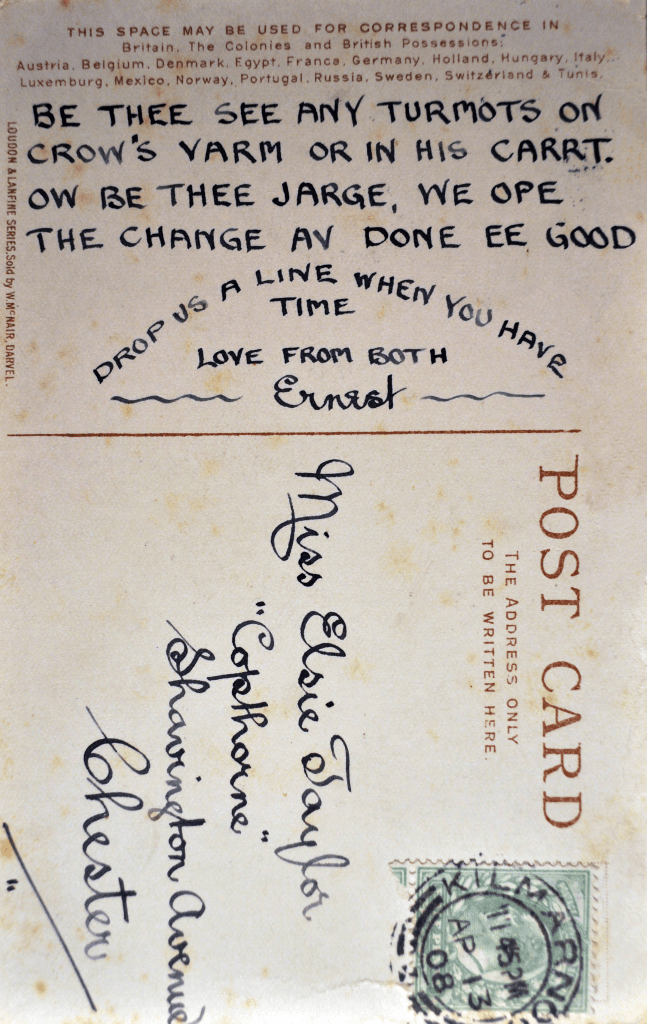 THIS SPACE MAY BE USED FOR CORRESPONDENCE IN
Britain, The Colonies and British Possessions;
Austria, Belgium, Denmark, Egypt, France, Germany, Holland, Hungary, Italy,
Luxemburg, Mexico, Norway, Portugal, Russia, Sweden, Switzerland & Tunis.
BE THEE SEE ANY TURMOTS ON
CROW'S VARM OR IN HIS CARRT.
OW BE THEE JARGE, WE OPE
THE CHANGE AV DONE EE GOOD
DROP US A LINE WHEN YOU HAVE
TIME
LOVE FROM BOTH
Ernest
LOUDON & LANFINE SERIES, Sold by W. McNAIR, DARVEL.
POST CARD
THE ADDRESS ONLY
TO BE WRITTEN HERE.
Miss Elsie Taylor
"Copthorne"
Shavington Avenue
Chester
KILMARNO
11 45PM
AP 13
08